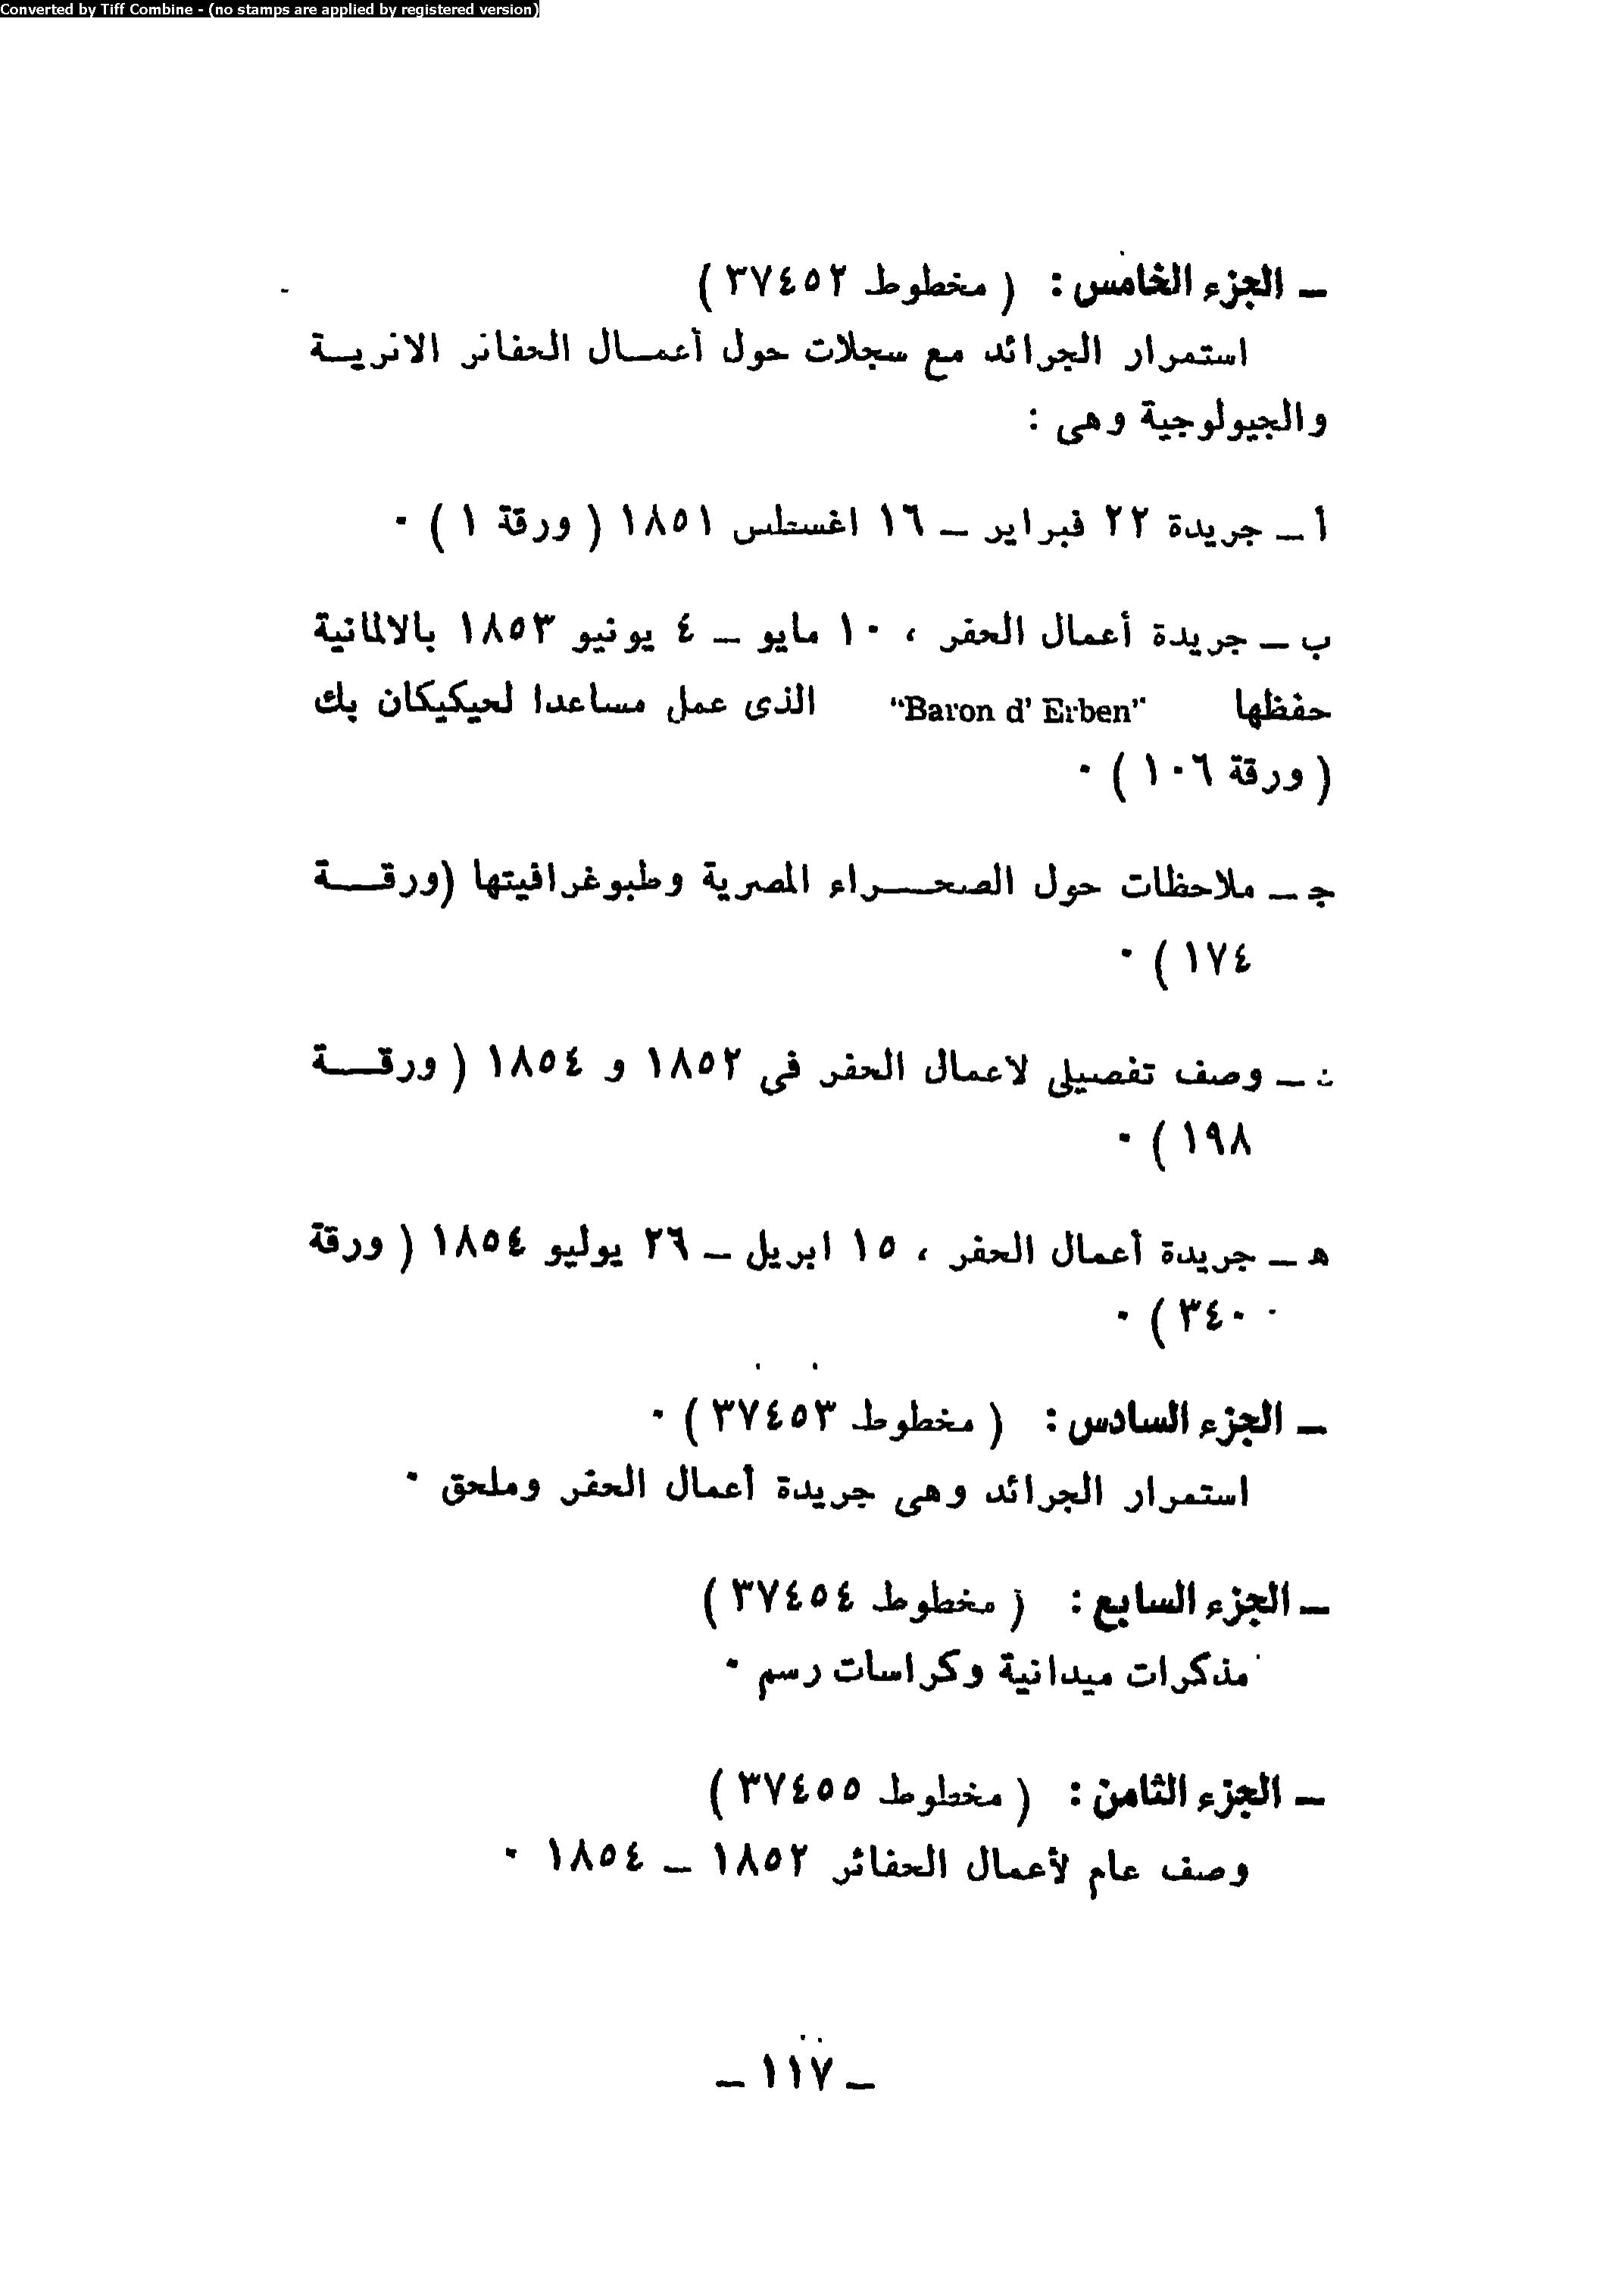 Converted by Tiff Combine - (no stamps are applied by registered version)
ـ الجزء الخامس : ( مخطوط ٣٧٤٥٢ )
استمرار الجرائد مع سجلات حول أعمـال الحفائر الاثريـة
والجيولوجية وهى :
أ ـ جريدة ٢٢ فبراير ـ ١٦ اغسطس ١٨٥١ ( ورقة ١ ) ٠
ب ـ جريدة أعمال الحفر ، ١٠ مايو ـ ٤ يونيو ١٨٥٣ بالالمانية
حفظها "Baron d' Erben" الذى عمل مساعدا لحيكيكان بك
( ورقة ١٠٦ ) ٠
جـ ـ ملاحظات حول الصحـراء المصرية وطبوغرافيتها (ورقـة
١٧٤ ) ٠
ـ وصف تفصيلى لاعمال الحفر فى ١٨٥٢ و ١٨٥٤ ( ورقـة
١٩٨ ) ٠
هـ ـ جريدة أعمال الحفر ، ١٥ ابريل ـ ٢٦ يوليو ١٨٥٤ ( ورقة
٣٤٠ ) ٠
ـ الجزء السادس : ( مخطوط ٣٧٤٥٣ ) ٠
استمرار الجرائد وهى جريدة أعمال الحفر وملحق ٠
ـ الجزء السابع : ( مخطوط ٣٧٤٥٤ )
مذكرات ميدانية وكراسات رسم ٠
ـ الجزء الثامن : ( مخطوط ٣٧٤٥٥ )
وصف عام لأعمال الحفائر ١٨٥٢ ـ ١٨٥٤ ٠
ـ ١١٧ ـ